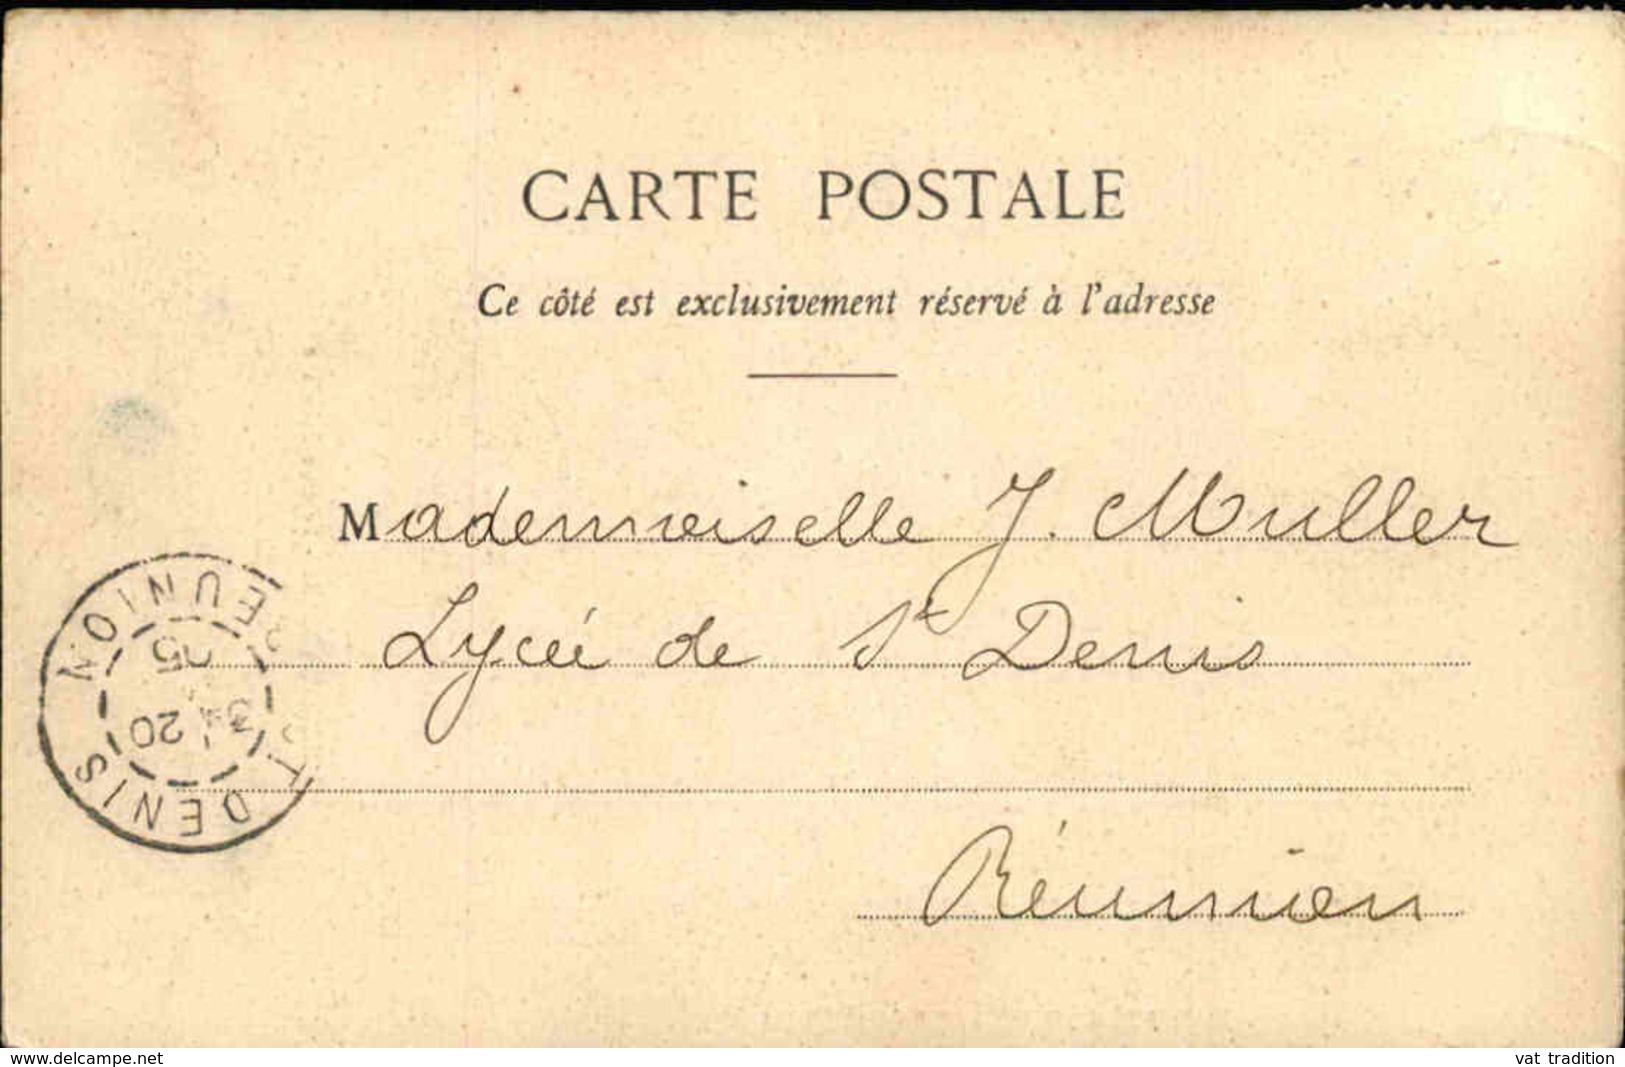 CARTE POSTALE
Ce côté est exclusivement réservé à l'adresse
Mademoiselle J. Muller
Lycée de St Denis
Réunion
ST DENIS
REUNION
20
05
www.delcampe.net
vat tradition